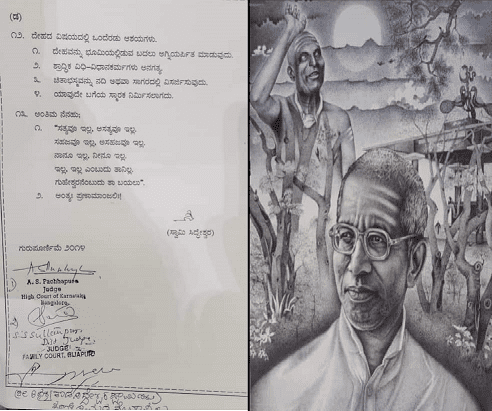 (ಡ)
೧೨. ದೇಹದ ವಿಷಯದಲ್ಲಿ ಒಂದೆರಡು ಆಶಯಗಳು.
೧. ದೇಹವನ್ನು ಭೂಮಿಯಲ್ಲಿಡುವ ಬದಲು ಅಗ್ನಿಯರ್ಪಿತ ಮಾಡುವುದು.
೨. ಶ್ರಾದ್ಧಿಕ ವಿಧಿ-ವಿಧಾನಕರ್ಮಗಳು ಅನಗತ್ಯ.
೩. ಚಿತಾಭಸ್ಮವನ್ನು ನದಿ ಅಥವಾ ಸಾಗರದಲ್ಲಿ ವಿಸರ್ಜಿಸುವುದು.
೪. ಯಾವುದೇ ಬಗೆಯ ಸ್ಮಾರಕ ನಿರ್ಮಿಸಲಾಗದು.
೧೩. ಅಂತಿಮ ನೆನಹು;
೧. "ಸತ್ಯವೂ ಇಲ್ಲ, ಅಸತ್ಯವೂ ಇಲ್ಲ.
ಸಹಜವೂ ಇಲ್ಲ, ಅಸಹಜವೂ ಇಲ್ಲ.
ನಾನೂ ಇಲ್ಲ, ನೀನೂ ಇಲ್ಲ.
ಇಲ್ಲ, ಇಲ್ಲ ಎಂಬುದು ತಾನಿಲ್ಲ.
ಗುಹೇಶ್ವರನೆಂಬುದು ತಾ ಬಯಲು".
೨. ಅಂತ್ಯಃ ಪ್ರಣಾಮಾಂಜಲಿಃ!
(ಸ್ವಾಮಿ ಸಿದ್ಧೇಶ್ವರ)
ಗುರುಪೂರ್ಣಿಮೆ ೨೦೧೪
1)
A. S. Pachhapure
Judge
High Court of Karnataka
Bangalore
2)
JUDGE
FAMILY COURT, BIJAPUR